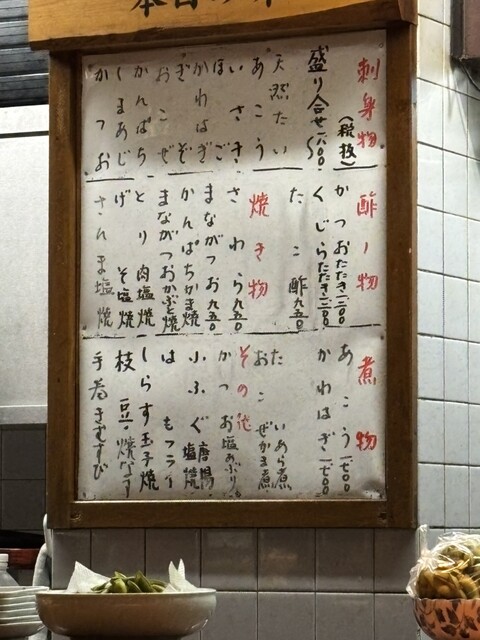 刺身物
（税抜）
盛り合せ一六〇〇〜
天然たい
あこう
いさき
ほご
かわはぎ
おこぜ
かんぱち
しまあじ
かつお
酢ノ物
かつおたたき一二〇〇
くじらたたき一二〇〇
たこ酢九五〇
焼き物
さわら九五〇
まながつお九五〇
かんぱちかま焼
まながつおかぶと焼
とり肉塩焼
げそ塩焼
さんま塩焼
煮物
あこう一七〇〇
かわはぎ一七〇〇
たいあら煮
おこぜかま煮
その他
かつお塩あぶり
小ふぐ唐揚 塩焼
はもフライ
しらす玉子焼
枝豆・焼なす
手巻きむすび